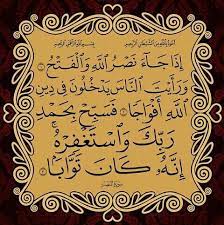 أعوذ بالله من الشيطان الرجيم بسم الله الرحمن الرحيم
إِذَا جَاءَ نَصْرُ اللَّهِ وَالْفَتْحُ
وَرَأَيْتَ النَّاسَ يَدْخُلُونَ فِي دِينِ
اللَّهِ أَفْوَاجًا فَسَبِّحْ بِحَمْدِ
رَبِّكَ وَاسْتَغْفِرْهُ
إِنَّهُ كَانَ تَوَّابًا